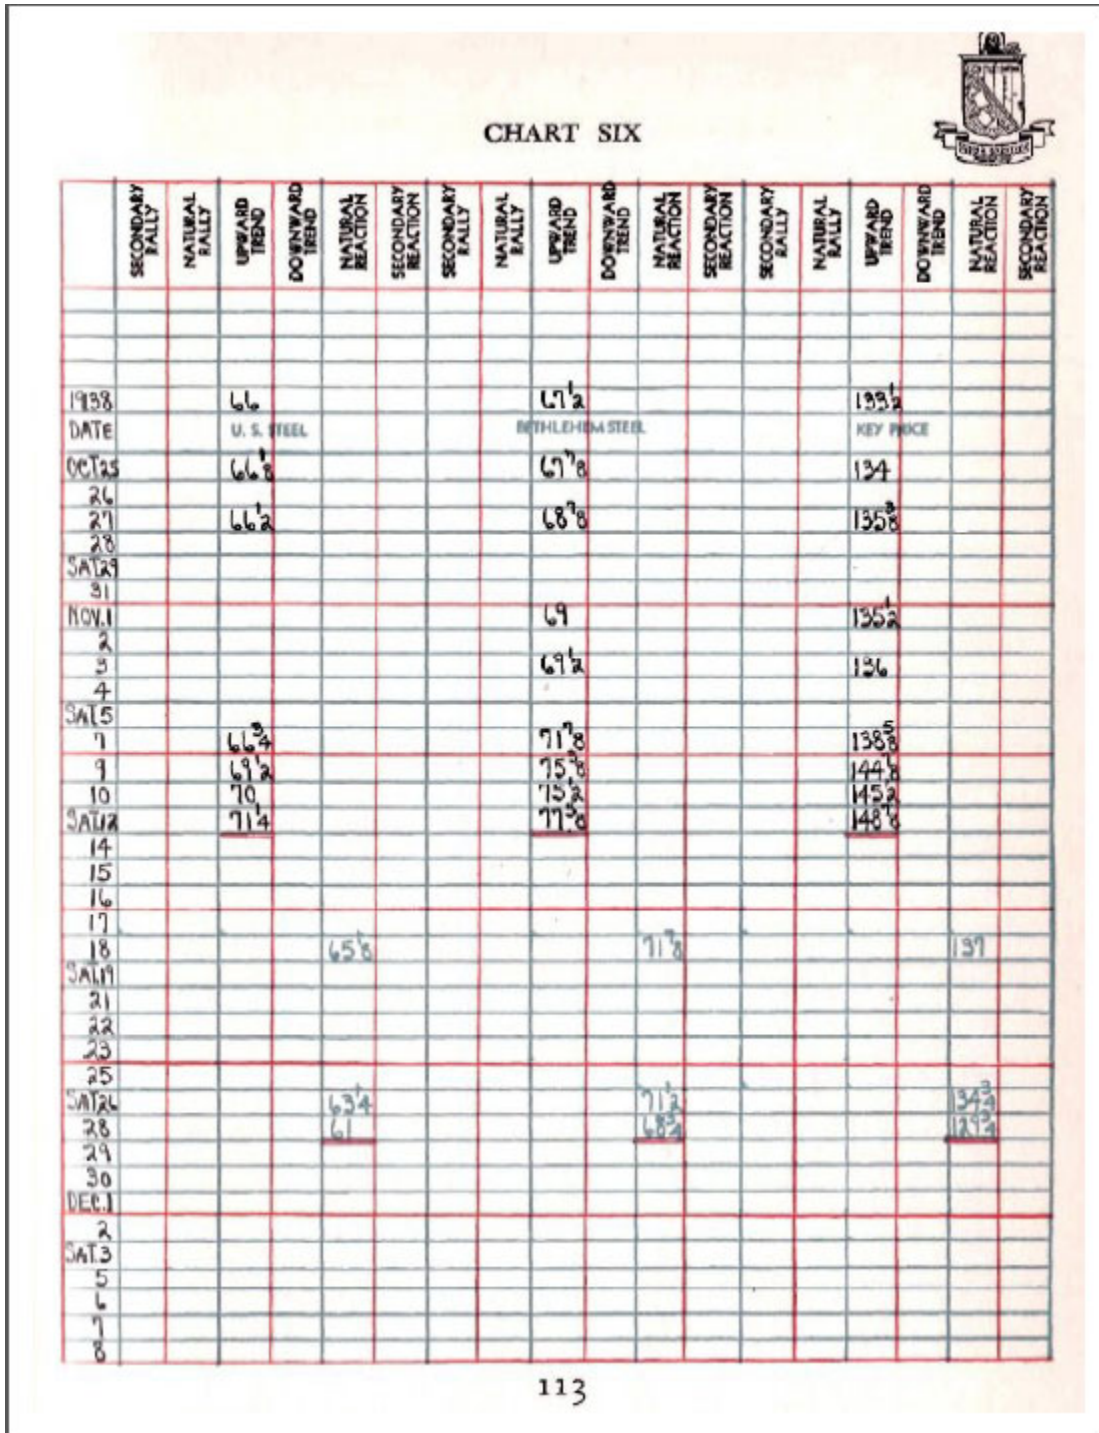 CHART SIX
SECONDARY RALLY NATURAL RALLY UPWARD TREND DOWNWARD TREND NATURAL REACTION SECONDARY REACTION SECONDARY RALLY NATURAL RALLY UPWARD TREND DOWNWARD TREND NATURAL REACTION SECONDARY REACTION SECONDARY RALLY NATURAL RALLY UPWARD TREND DOWNWARD TREND NATURAL REACTION SECONDARY REACTION
1938 66 67 1/2 133 1/2
DATE U. S. STEEL BETHLEHEM STEEL KEY PRICE
OCT 25 66 1/8 67 7/8 134
26
27 66 1/2 68 7/8 135 3/8
28
SAT.29
31
NOV.1 69 135 1/2
2
3 69 1/2 136
4
SAT.5
7 66 3/4 71 7/8 138 5/8
9 69 1/2 75 3/8 144 7/8
10 70 75 1/2 145 1/2
SAT.12 71 1/4 77 5/8 148 7/8
14
15
16
17
18 65 1/8 71 7/8 137
SAT.19
21
22
23
25
SAT.26 63 1/4 71 1/2 134 3/4
28 61 68 3/4 129 3/4
29
30
DEC.1
2
SAT.3
5
6
7
8
113